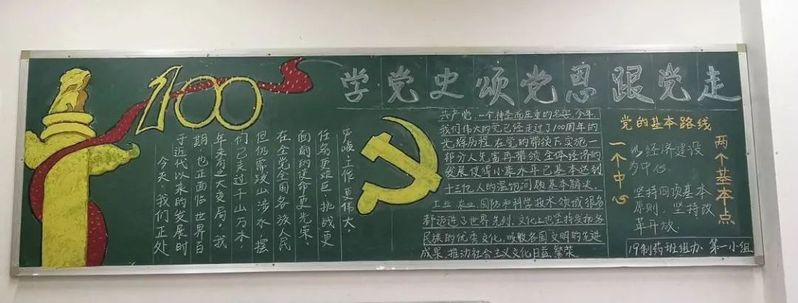 100
学党史颂党恩跟党走
今天,我们正处
于近代以来的发展时
期,也正面临世界百
年未有之大变局。我
们已走过千山万水,
但仍需跋山涉水,摆
在全党全国各族人民
面前的使命更光荣,
任务更艰巨,挑战更
严峻,工作更伟大。
共产党,一个神圣而庄重的名字,今年,
我们伟大的党已经走过了100周年的
光辉历程,在党的带领下,实施一
部分人先富再带领全体经济的
发展,使得小康水平已基本达到
十三亿人的温饱问题基本解决,
工业、农业、国防和科学技术领域很多
都迈进了世界先列,文化上也坚持发扬各
民族的优秀文化,吸取各国文明的先进
成果,推动社会主义文化日益繁荣。
党的基本路线
一个中心
以经济建设
为中心。
坚持四项基本
原则,坚持改
革开放。
两个基本点
19制药班组办 第一小组